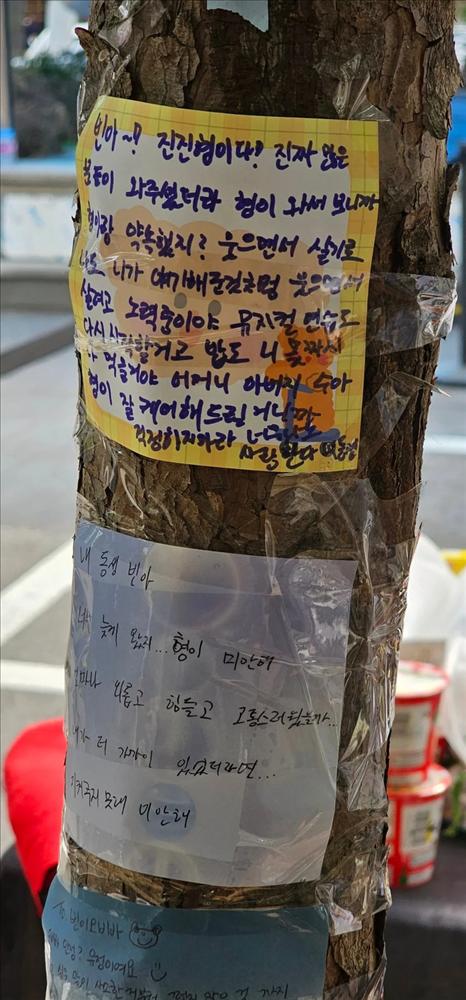 빈아~! 진진형이다! 진짜 많은
분들이 와주셨더라 형이 와서 보니까
형이랑 약속했지? 웃으면서 살기로
나도 니가 얘기해준것처럼 웃으면서
살려고 노력중이야 뮤지컬 연습도
다시 시작할거고 밥도 니 몫까지
다 먹을거야 어머니 아버지 수아
형이 잘 케어해드릴거니까
걱정하지마라
사랑한다 내동생
내 동생 빈아
너무 늦게 왔지... 형이 미안해
얼마나 외롭고 힘들고 고통스러웠을까..
내가 더 가까이 있었더라면...
지켜주지 못해 미안해
To 빈이오빠
안녕? 유정이에요